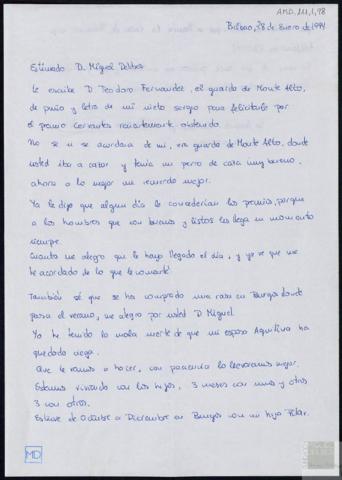 AMD, 111, 1, 98
Bilbao, 28 de Enero de 1994
Estimado D. Miguel Delibes
Le escribe D Teodoro Fernandez, el guarda de Monte Alto,
de puño y letra de mi nieto Sergio para felicitarle por
el premio Cervantes recientemente obtenido.
No se si se acordara de mi, era guarda de Monte Alto, donde
usted iba a cazar y tenia un perro de caza muy bueno,
ahora a lo mejor mi recuerdo mejor.
Ya le dije que algun dia le concederian los premios, porque
a los hombres que son buenos y listos les llega su momento
siempre.
Cuanto me alegro que le haya llegado el dia, y ya ve que me
he acordado de lo que le comenté.
También sé que se ha comprado una casa en Burgos donde
pasa el verano, me alegro por usted D Miguel.
Yo he tenido la mala suerte de que mi esposa Aquilina ha
quedado ciega.
Que le vamos a hacer, con paciencia lo llevaremos mejor.
Estamos viviendo con los hijos, 3 meses con unos y otros
3 con otros.
Estuve de Octubre a Diciembre en Burgos con mi hija Pilar.
MD